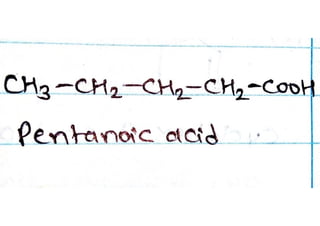 CH₃-CH₂-CH₂-CH₂-COOH
Pentanoic acid